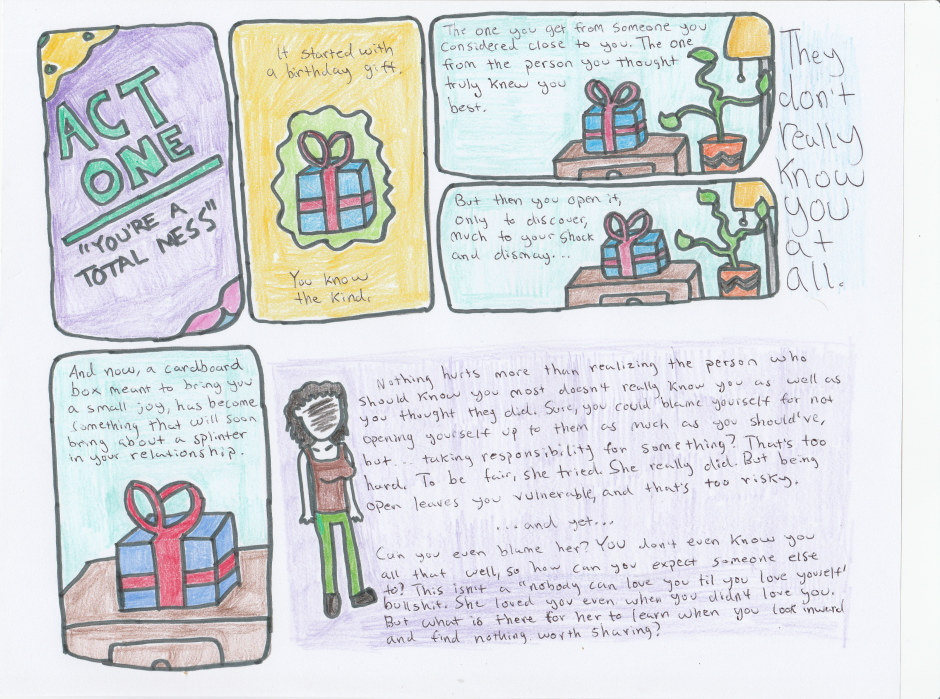 ACT
ONE
"YOU'RE A
TOTAL MESS"
It started with
a birthday gift.
You know
the kind.
The one you get from someone you
considered close to you. The one
from the person you thought
truly knew you
best.
But then you open it,
only to discover,
much to your shock
and dismay...
They
don't
really
know
you
at
all.
And now, a cardboard
box meant to bring you
a small joy, has become
something that will soon
being about a splinter
in your relationship.
Nothing hurts more than realizing the person who
should know you most doesn't really know you as well as
you thought they did. Sure, you could blame yourself for not
opening yourself up to them as much as you should've,
but... taking responsibility for something? That's too
hard. To be fair, she tried. She really did. But being
open leaves you vulnerable, and that's too risky.
... and yet...
Can you even blame her? You don't even know you
all that well, so how can you expect someone else
to? This isn't a "nobody can love you til you love yourself"
bullshit. She loved you even when you didn't love you.
But what is there for her to learn when you look inward
and find nothing worth sharing?